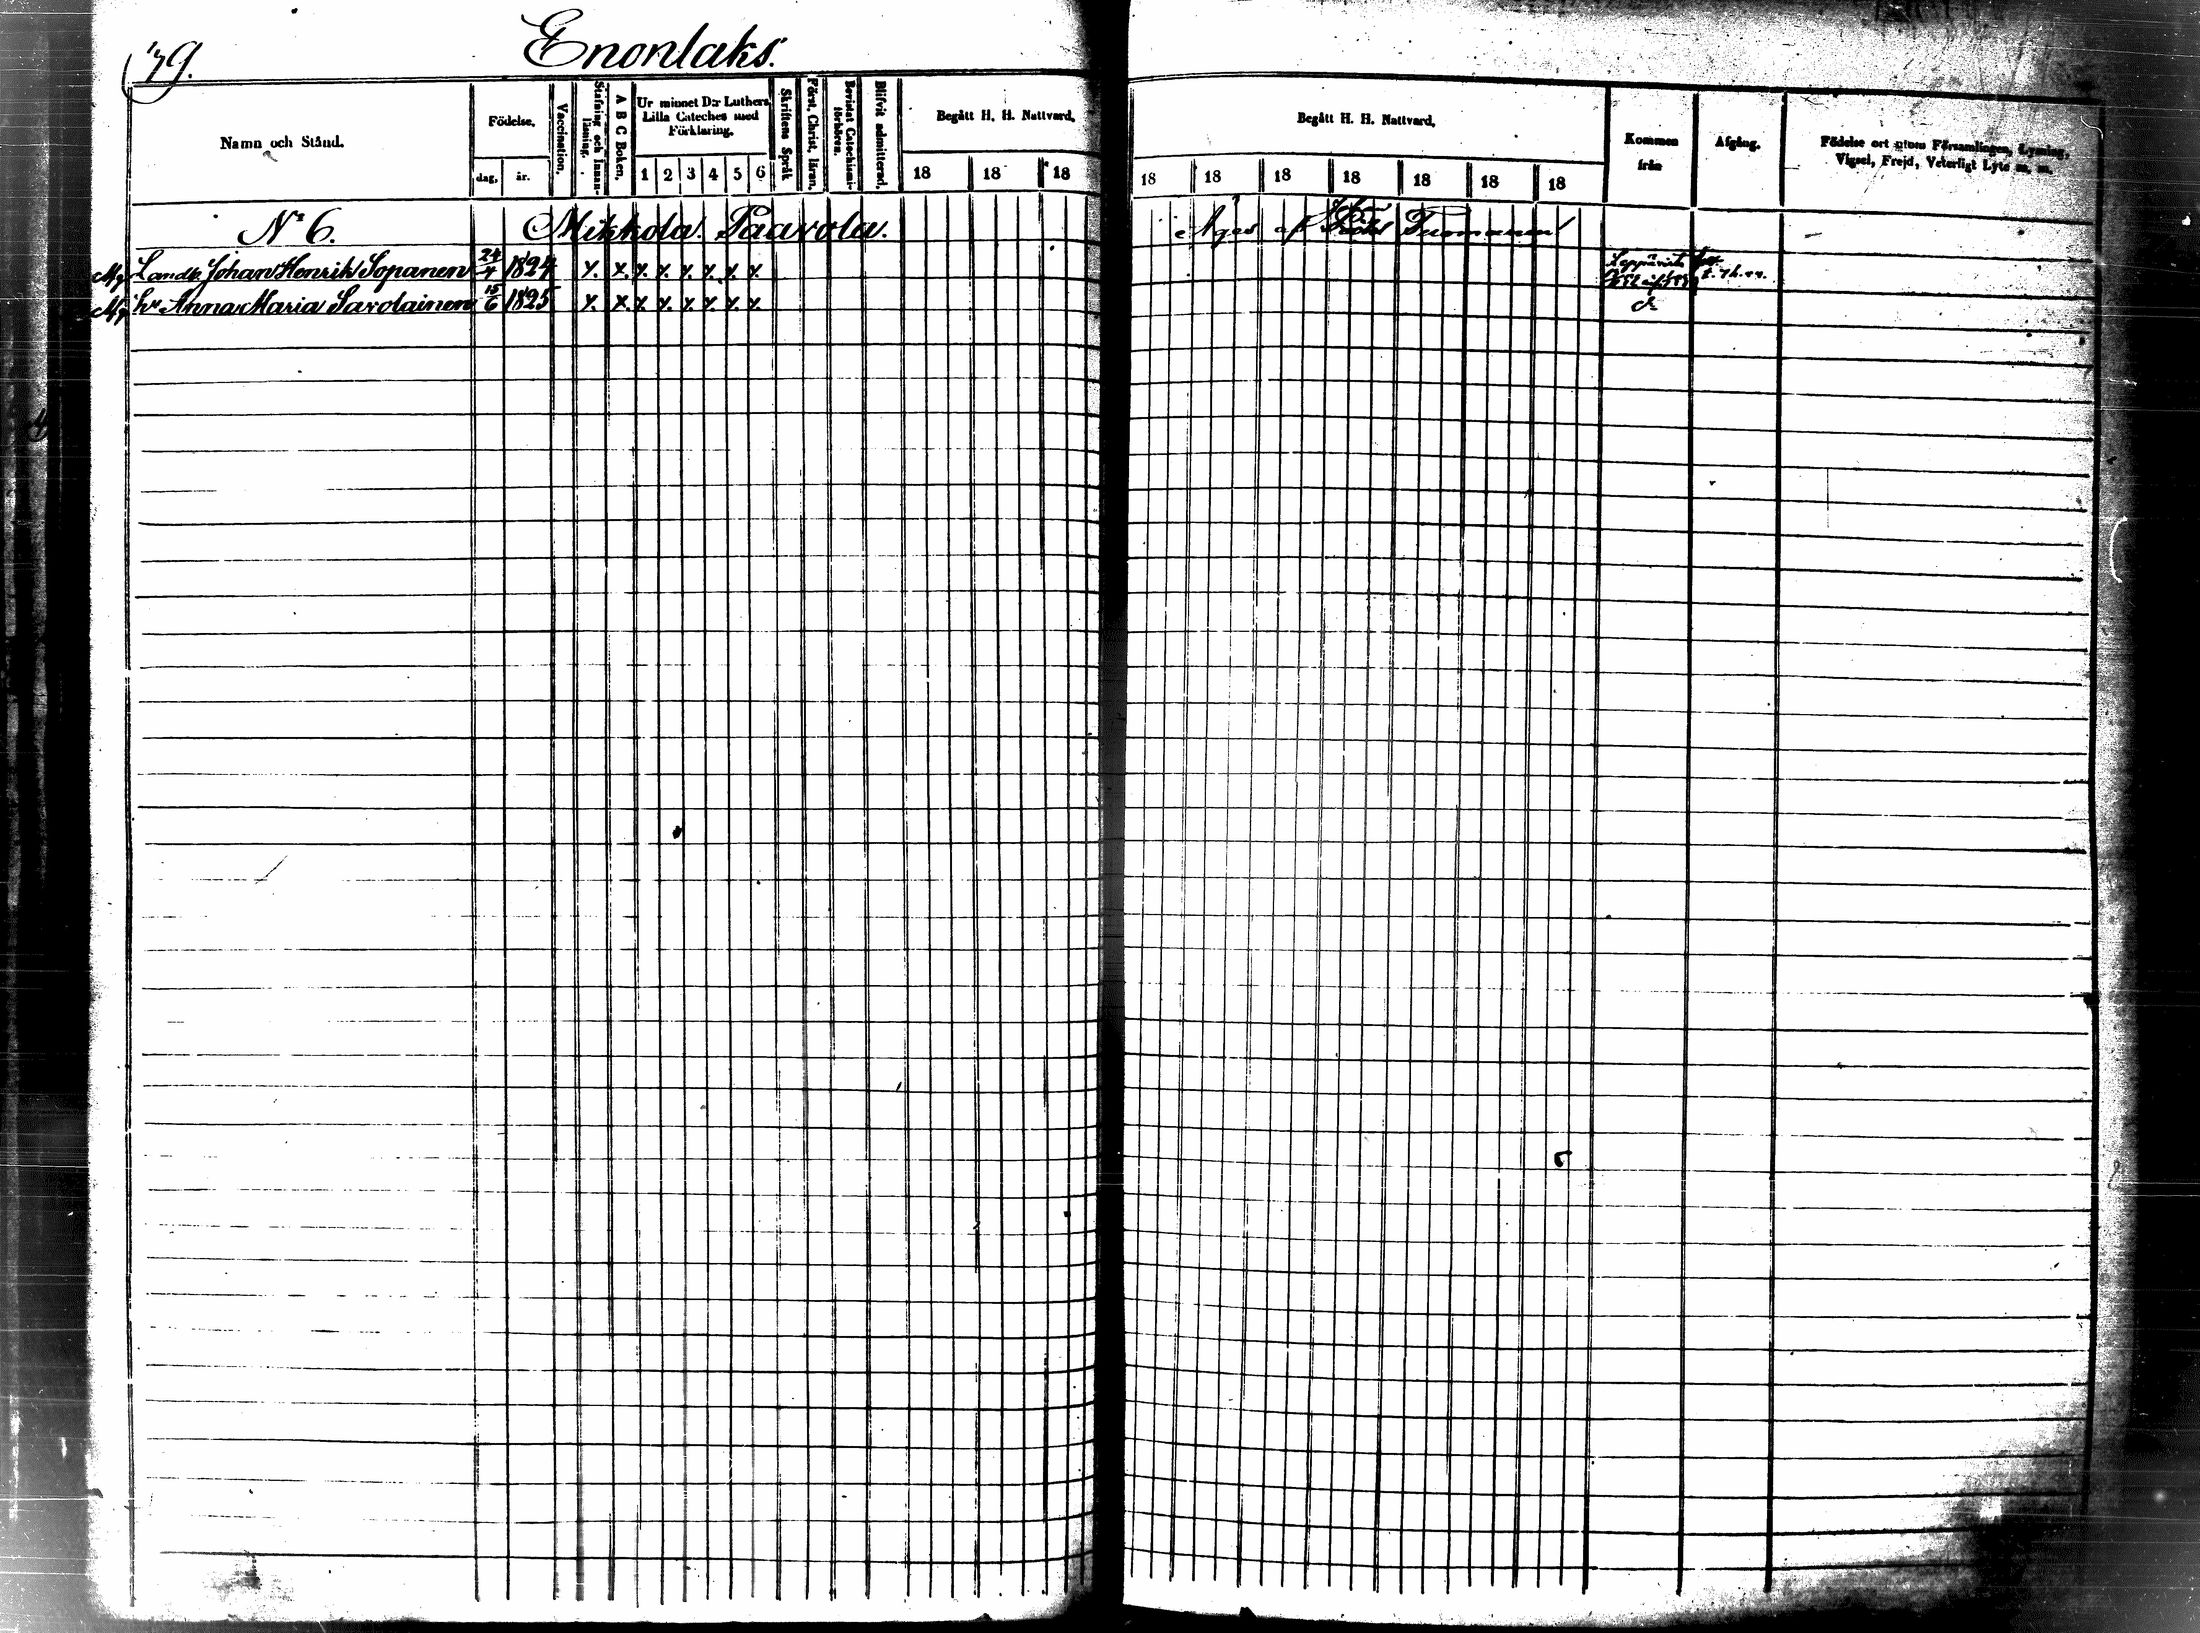 79.
Enonlaks.
Namn och Stånd.
Födelse.
dag.
år.
Vaccination.
Stafning och Innanläsning.
A B C Boken.
Ur minnet D:r Luthers Lilla Cateches med Förklaring.
1 2 3 4 5 6
Skriftens Språk
Först. Christ. läran.
Bevistat Catechismi-förhören.
Blifvit admitterad.
Begått H. H. Nattvard.
18 18 18
Begått H. H. Nattvard.
18 18 18 18 18 18 18
Kommen från
Afgång.
Födelse ort utom Församlingen, Lysning, Vigsel, Frejd, Veterligt Lyte m. m.
No 6. Mikkola. Paavola. Äges af Tuomainen
Landb. Johan Henrik Sopanen 24/4 1824 x. x. x. x. x. x. x. x.
hu Anna Maria Savolainen 15/6 1825 x. x. x. x. x. x. x. x.